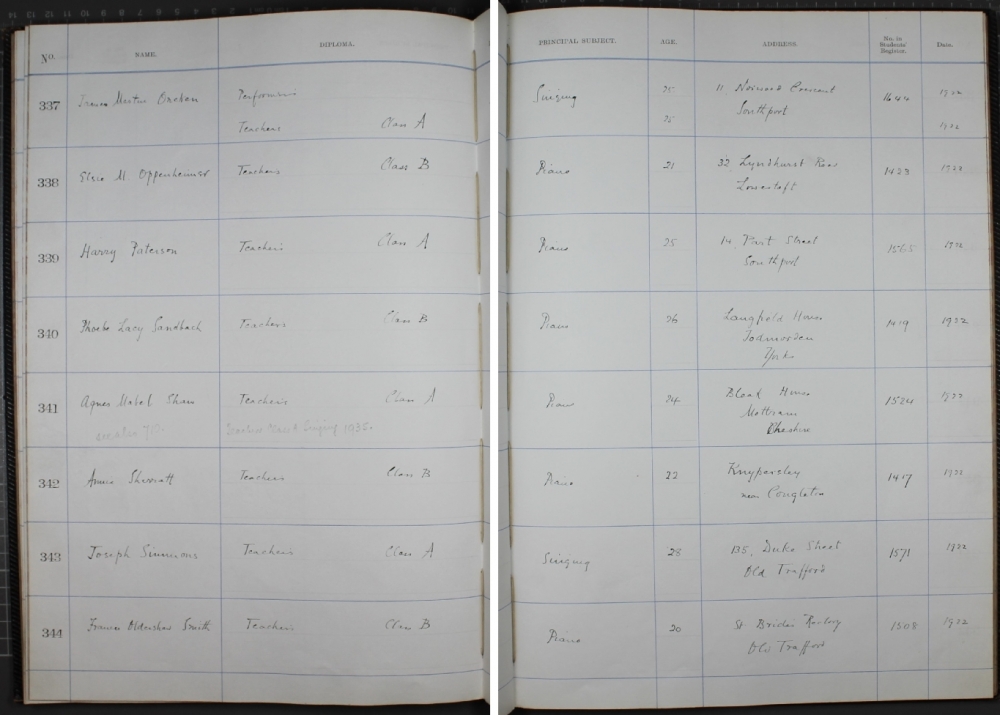 No. NAME. DIPLOMA. PRINCIPAL SUBJECT. AGE. ADDRESS. No. in Students' Register. Date.
337 Martin Performers Singing 25 11 Norwood Crescent 1644 1922
Teachers Class A 25 Southport 1922
338 Elsie M. Oppenheimer Teachers Class B Piano 21 32, Lyndhurst Road 1423 1922
Lowestoft
339 Harry Paterson Teachers Class A Piano 25 14, Street 1565 1922
Southport
340 Phoebe Lacy Sandbach Teachers Class B Piano 26 Langfield House 1419 1922
Todmorden
Yorks
341 Agnes Mabel Shaw Teachers Class A Piano 24 House 1524 1922
Mottram
Cheshire
see also Teachers Class Singing 1935.
342 Annie Sherratt Teachers Class B Piano 22 Knypersley 1417 1922
near Congleton
343 Joseph Simmons Teachers Class A Singing 28 135, Duke Street 1571 1922
Old Trafford
344 Frances Oldershaw Smith Teachers Class B Piano 20 St Brides Rectory 1508 1922
Old Trafford